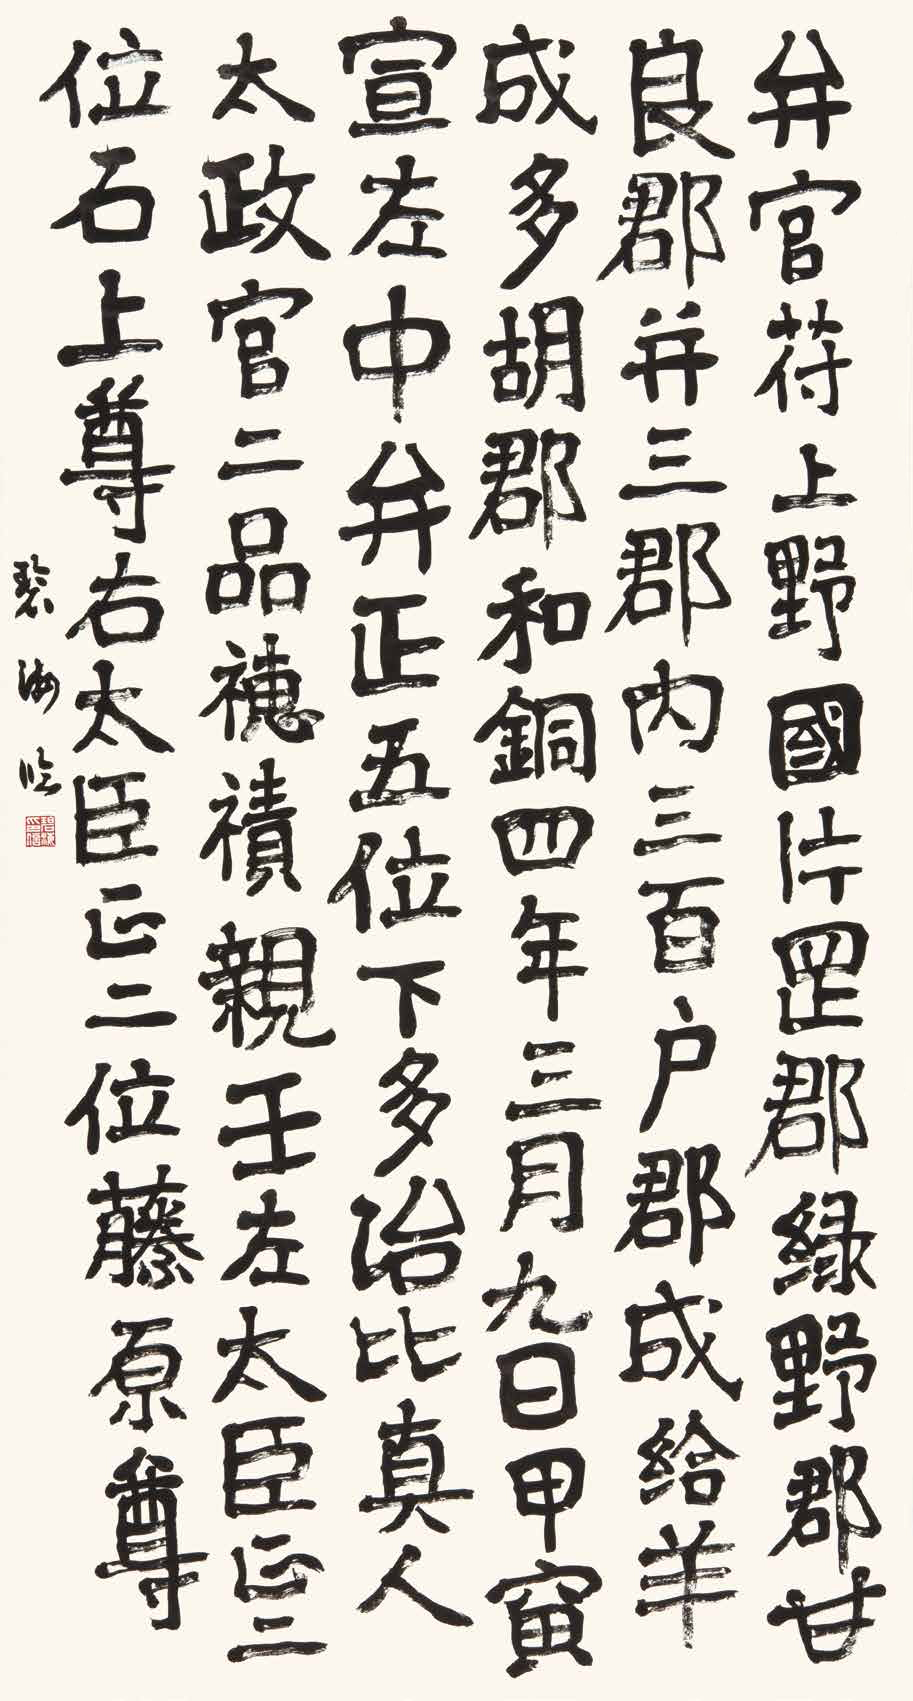 弁官苻上野國片罡郡緑野郡甘
良郡并三郡内三百户郡成給羊
成多胡郡和銅四年三月九日甲寅
宣左中弁正五位下多治比真人
太政官二品穂積親王左太臣正二
位石上尊右太臣正二位藤原尊
碧海臨